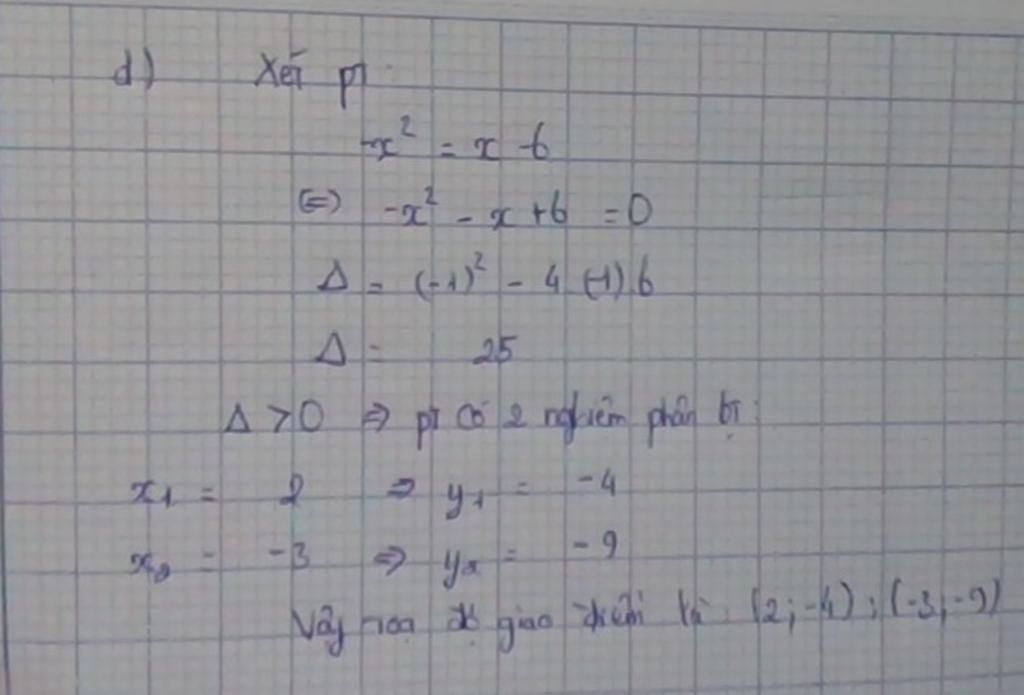 d) Xét pt
-x² = x - 6
(=) -x² - x + 6 = 0
Δ = (-1)² - 4 (-1) 6
Δ = 25
Δ > 0 => pt có 2 nghiệm phân bt:
x₁ = 2 => y₁ = -4
x₂ = -3 => y₂ = -9
Vậy toạ độ giao điểm là: (2; -4); (-3; -9)